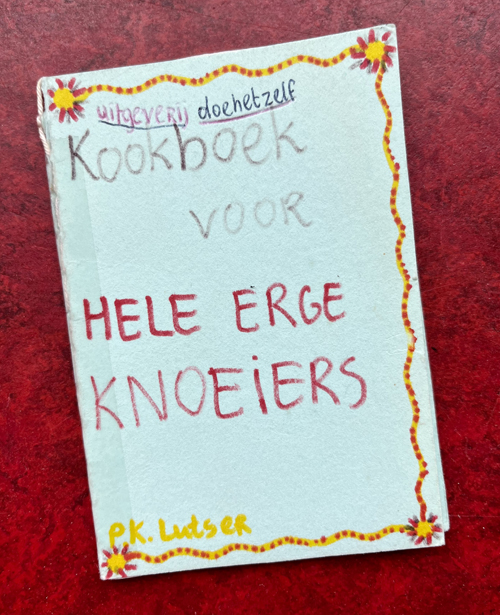 uitgeverij doehetzelf
Kookboek
voor
HELE ERGE
KNOEiERS
P.K. Lutser